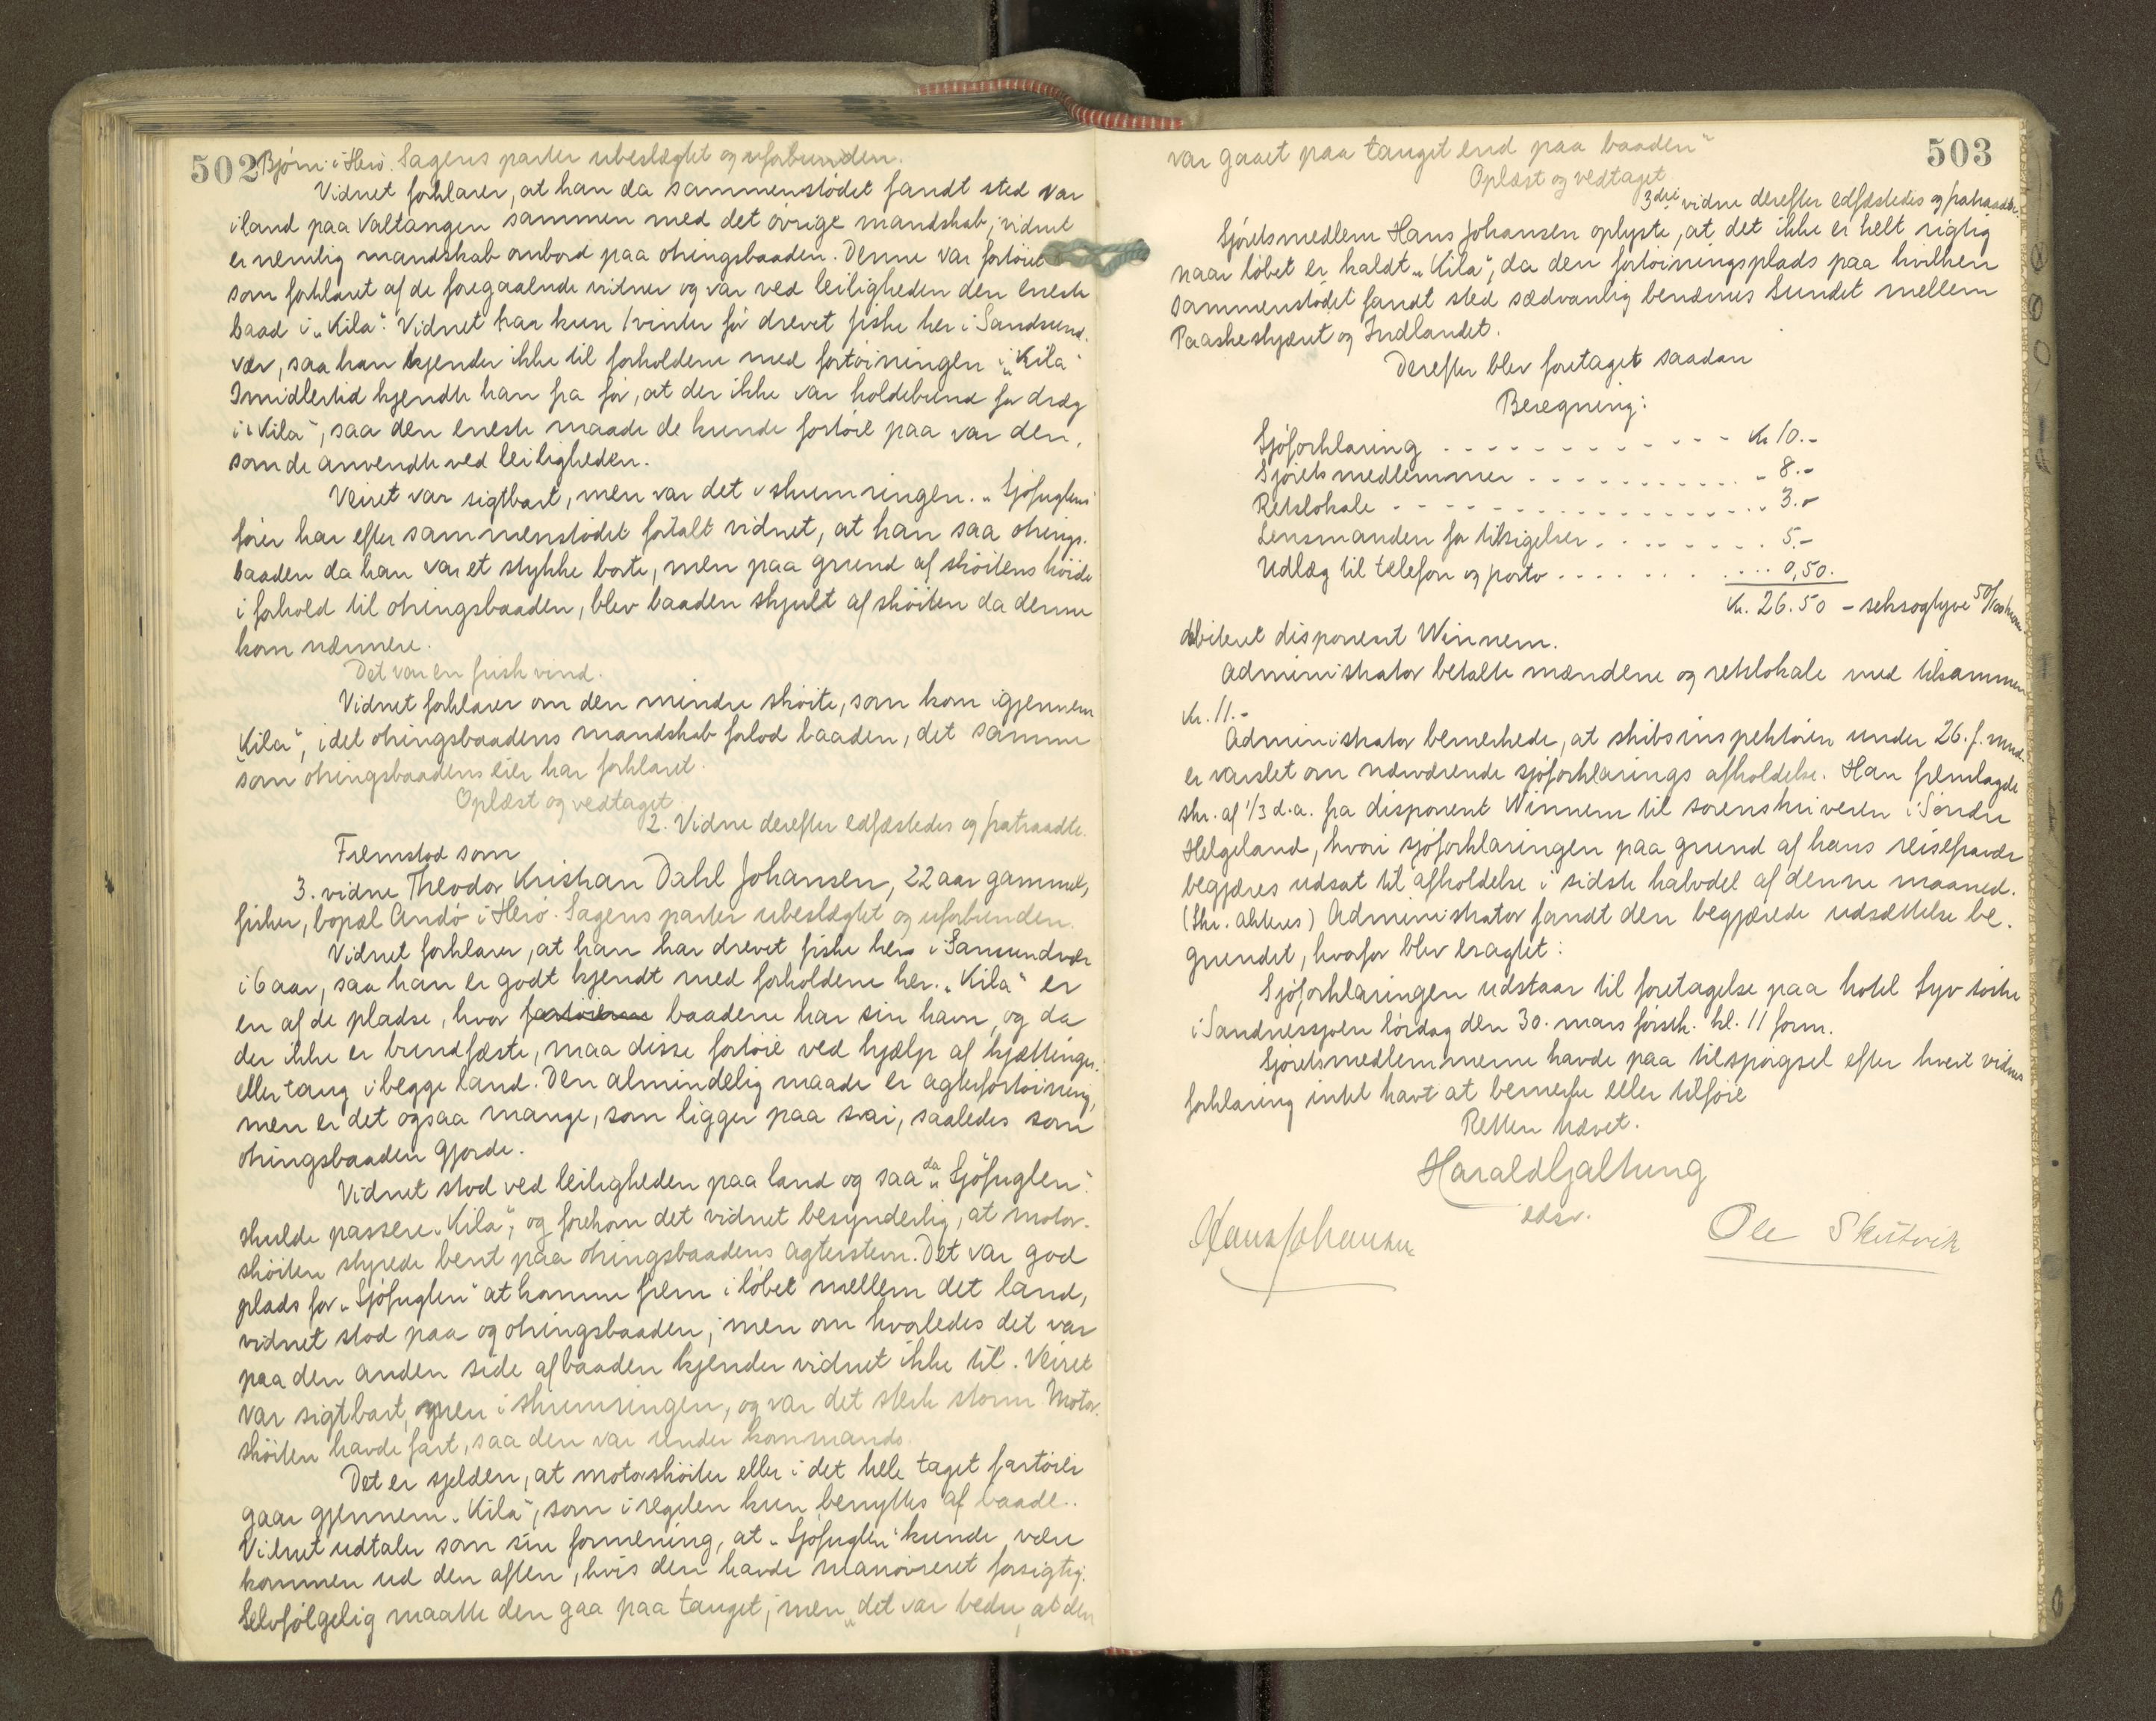 502 Bjørn i Herø. Sagens parter ubeslægtet og uforbunden.
Vidnet forklarer, at han da sammenstödet fandt sted var
iland paa Valtangen sammen med det övrige mandskab, vidnet
er nemlig mandskab ombord paa otringsbaaden. Denne var fortöiet
som forklaret af de foregaaende vidner og var ved leiligheden den eneste
baad i „Kila“. Vidnet har kun 1 vinter för drevet fiske her i Sandsund-
vær, saa han kjender ikke til forholdene med fortöiningen i „Kila“
Imidlertid kjendte han fra för, at der ikke var holdebund for dræg
i „Kila“, saa den eneste maade de kunde fortöie paa var den,
som de anvendte ved leiligheden.
Veiret var sigtbart, men var det i skumringen. „Sjöfuglens“
förer har efter sammenstödet fortalt vidnet, at han saa otrings-
baaden da han var et stykke borte, men paa grund af sköitens höide
i forhold til otringsbaaden, blev baaden skjult af sköiten da denne
kom nærmere.
Det var en frisk vind.
Vidnet forklarer om den mindre sköite, som kom igjennem
„Kila“, idet otringsbaadens mandskab forlod baaden, det samme
som otringsbaadens eier har forklaret.
Oplæst og vedtaget
2. Vidne derefter edfæstedes og fratraadte.
Fremstod som
3. vidne Theodor Kristian Dahl Johansen, 22 aar gammel,
fisker, bopæl Andö i Herö. Sagens parter ubeslægtet og uforbunden.
Vidnet forklarer, at han har drevet fiske her i Sansundvær
i 6 aar, saa han er godt kjendt med forholdene her. „Kila“ er
en af de pladse, hvor fartöierne baadene har sin havn, og da
der ikke er bundfæste, maa disse fortöie ved hjælp af kjættinger
eller taug i begge land. Den almindelig maade er agterfortöining,
men er det ogsaa mange, som ligger paa svai, saaledes som
otringsbaaden gjorde.
Vidnet stod ved leiligheden paa land og saa da „Sjöfuglen“
skulde passere „Kila“, og forekom det vidnet besynderlig, at motor-
sköiten styrede bent paa otringsbaadens agterstevn. Det var god
plads for „Sjöfuglen“ at komme frem i löbet mellem det land,
vidnet stod paa og otringsbaaden, men om hvorledes det var
paa den anden side af baaden kjender vidnet ikke til. Veiret
var sigtbart, men i skumringen, og var det sterk storm. Motor-
sköiten havde fart, saa den var under kommando.
Det er sjelden, at motorsköiter eller i det hele taget fartöier
gaar gjennem „Kila“, som i regelen kun benyttes af baade.
Vidnet udtaler som sin formening, at „Sjöfuglen“ kunde være
kommen ud den aften, hvis den havde manövreret forsigtig.
Selvfölgelig maatte den gaa paa tauget, men „det var bedre, at den
503
var gaaet paa tauget end paa baaden“
Oplæst og vedtaget
3die vidne derefter edfæstedes og fratraadte.
Sjöretsmedlem Hans Johansen oplyste, at det ikke er helt rigtig
naar löbet er kaldt „Kila“, da den fortöiningsplads paa hvilken
sammenstödet fandt sted sædvanlig benævnes Sundet mellem
Paaskeskjæret og Indlandet.
Derefter blev foretaget saadan
Beregning:
Sjöforklaring - - - - - Kr 10.-
Sjöretsmedlemmer . . . . . - 8.-
Retslokale - - - - - - 3.-
Lensmanden for tilsigelser . . . . . 5.-
Udlæg til telefon og porto . . . . . 0,50.
Kr. 26.50 - seksogtyve 50/100 kroner
debiteret disponent Winnem.
Administrator betalte mændene og retslokale med tilsammen
Kr. 11.-
Administrator bemerkede, at skibsinspektören under 26. f. mnd.
er varslet om nærværende sjöforklarings afholdelse. Han fremlagde
skr. af 1/3 d.a. fra disponent Winnem til sorenskriveren i Söndre
Helgeland, hvori sjöforklaringen paa grund af hans reisefravær
begjæres udsat til afholdelse i sidste halvdel af denne maaned.
(Skr. akteres) Administrator fandt den begjærede udsættelse be-
grundet, hvorfor blev eragtet:
Sjöforklaringen udstaar til foretagelse paa hotel Syv söstre
i Sandnessjöen lördag den 30. mars förstk. kl. 11 form.
Sjöretsmedlemmerne havde paa tilspörgsel efter hvert vidnes
forklaring intet havt at bemerke eller tilföie
Retten hævet.
Harald Galtung
edsv.
Hans Johansen
Ole Skutvik